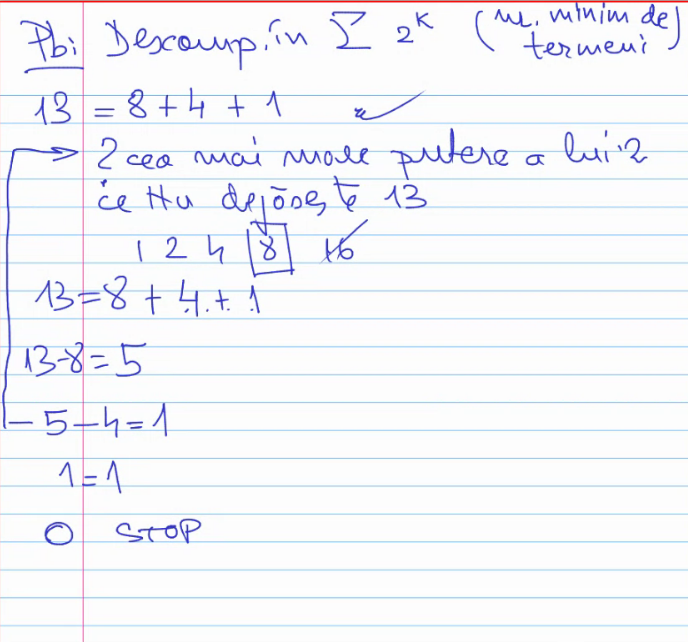 Pb: Descomp. în Σ 2^K (nr. minim de termeni)
13 = 8 + 4 + 1
2 cea mai mare putere a lui 2
ce nu depășește 13
1 2 4 8 16
13 = 8 + 4 + 1
13-8=5
5-4=1
1=1
0 STOP